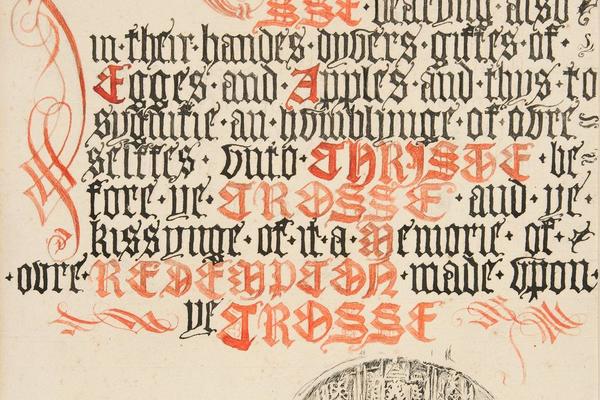 SSE · bearyng also
in·their·handes·dyvers·giftes·of·
Egges·and·Apples·and·thys·to
sygnifie·an·howblynge·of·ovre
selffes·vnto·CHRISTE·be
fore·ye·CROSSE·and·ye·
kissynge·of·it·a·Memorie·of·
·ovre·REDEMPTION·made·vpon·
ye CROSSE